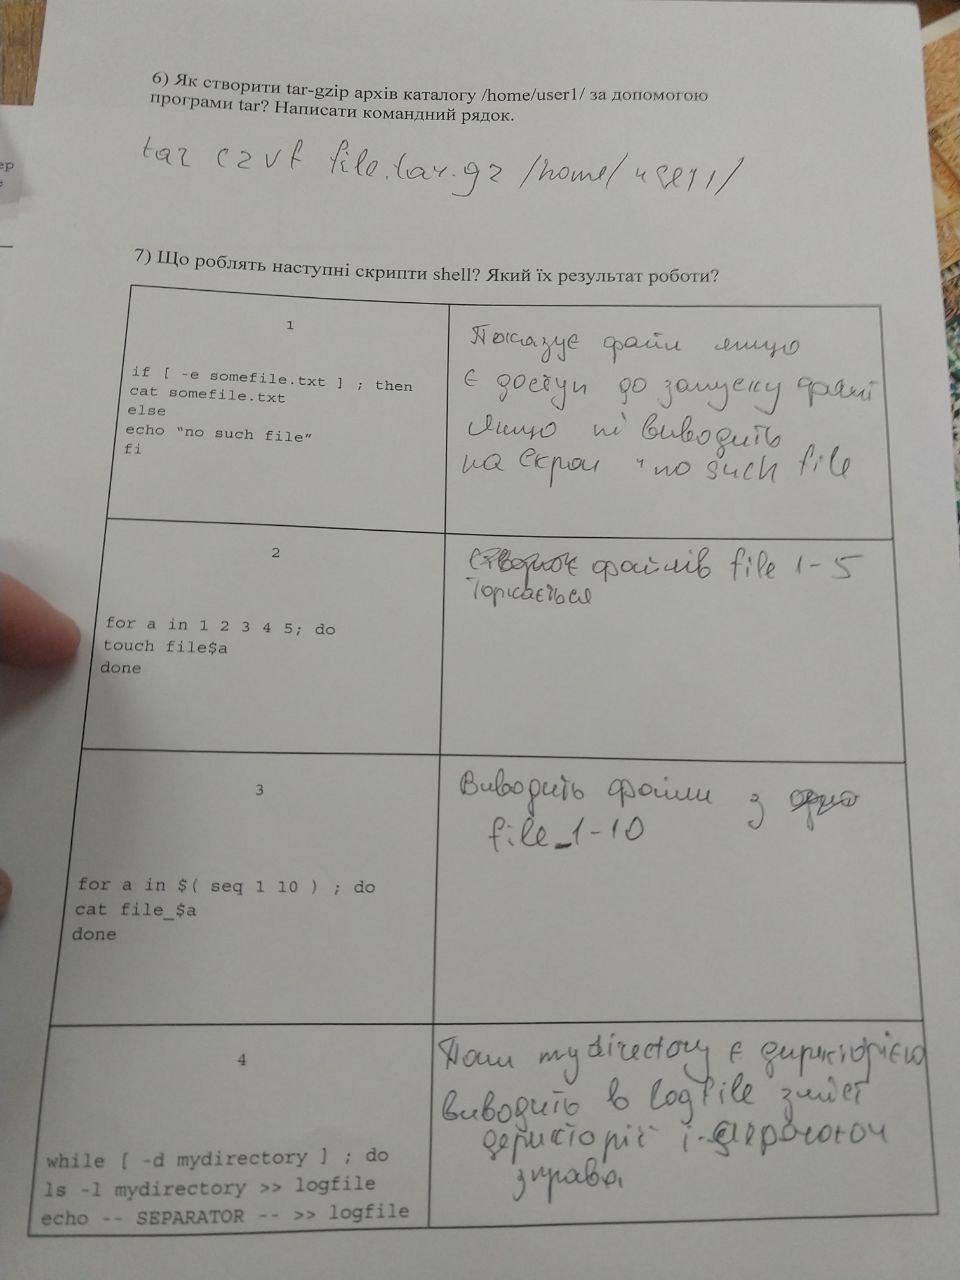 6) Як створити tar-gzip архів каталогу /home/user1/ за допомогою
програми tar? Написати командний рядок.
tar czvf file.tar.gz /home/user1/
7) Що роблять наступні скрипти shell? Який їх результат роботи?
1
if [ -e somefile.txt ] ; then
cat somefile.txt
else
echo "no such file"
fi
Показує файл якщо
є доступ до запуску файлі
якщо ні виводить
на екран "no such file
2
for a in 1 2 3 4 5; do
touch file$a
done
файлів file 1-5
Торкається
3
for a in $( seq 1 10 ) ; do
cat file_$a
done
Виводить файли з
file_1-10
4
while [ -d mydirectory ] ; do
ls -l mydirectory >> logfile
echo -- SEPARATOR -- >> logfile
mydirectory є
виводить в logfile зміст
і